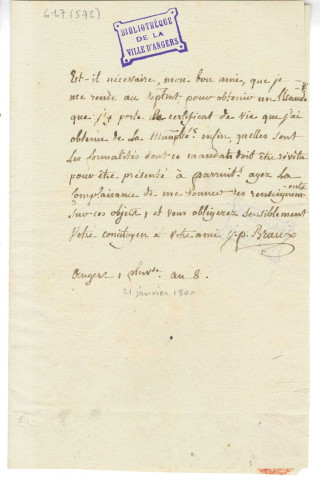 617 (572)
BIBLIOTHÈQUE
DE LA
VILLE D'ANGERS
Est-il nécessaire, mon bon ami, que je
me rende au pour obtenir un Mandat
que j'y porte le certificat de vie que j'ai
obtenu de la Munplté: enfin, quelles sont
les formalités dont ce mandat doit être revêtu
pour être présenté à ayez la
Complaisance de me donner des renseignements
sur ces objets, et vous obligerez sensiblement
Votre concitoyen & votre ami J. p. Braux
Angers 1 pluvse an 8.
21 janvier 1800